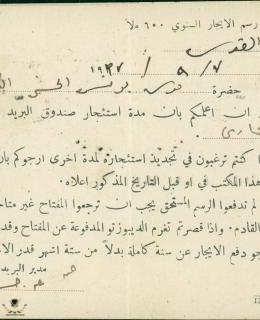 رسم الايجار السنوي ٦٠٠ ملاً
القدس
٧ / ٩ / ١٩٣٧
حضرة
ان اعلمكم بان مدة استئجار صندوق البريد
ا كنتم ترغبون في تجديد استئجاره لمدة اخرى ارجوكم بان
هذا المكتب في او قبل التاريخ المذكور اعلاه.
لم تدفعوا الرسم المستحق يجب ان ترجعوا المفتاح غير متا
القادم. واذا قصرتم تغرم الديبوزتو المدفوعة عن المفتاح وقد
جو دفع الايجار عن سنة كاملة بدلاً من ستة اشهر قدر الا
مدير البريد